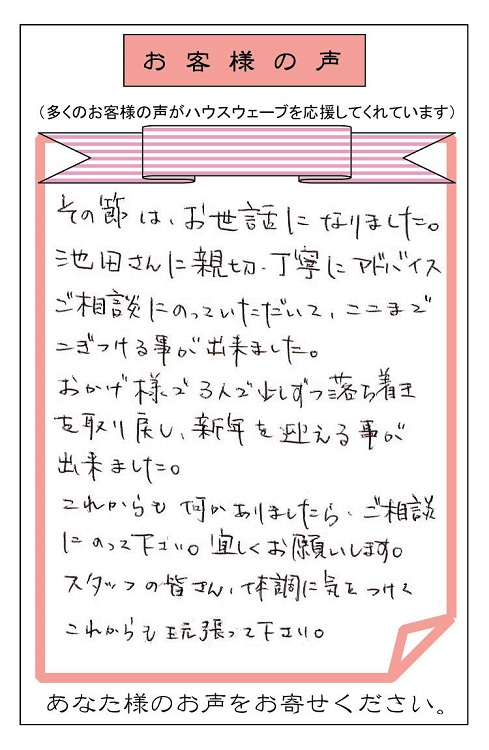 お客様の声
（多くのお客様の声がハウスウェーブを応援してくれています）
その節は、お世話になりました。
池田さんに親切、丁寧にアドバイス
ご相談にのっていただいて、ここまで
こぎつける事が出来ました。
おかげ様で3人で少しずつ落ち着き
を取り戻し、新年を迎える事が
出来ました。
これからも何かありましたら、ご相談
にのって下さい。宜しくお願いします。
スタッフの皆さん、体調に気をつけて
これからも頑張って下さい。
あなた様のお声をお寄せください。